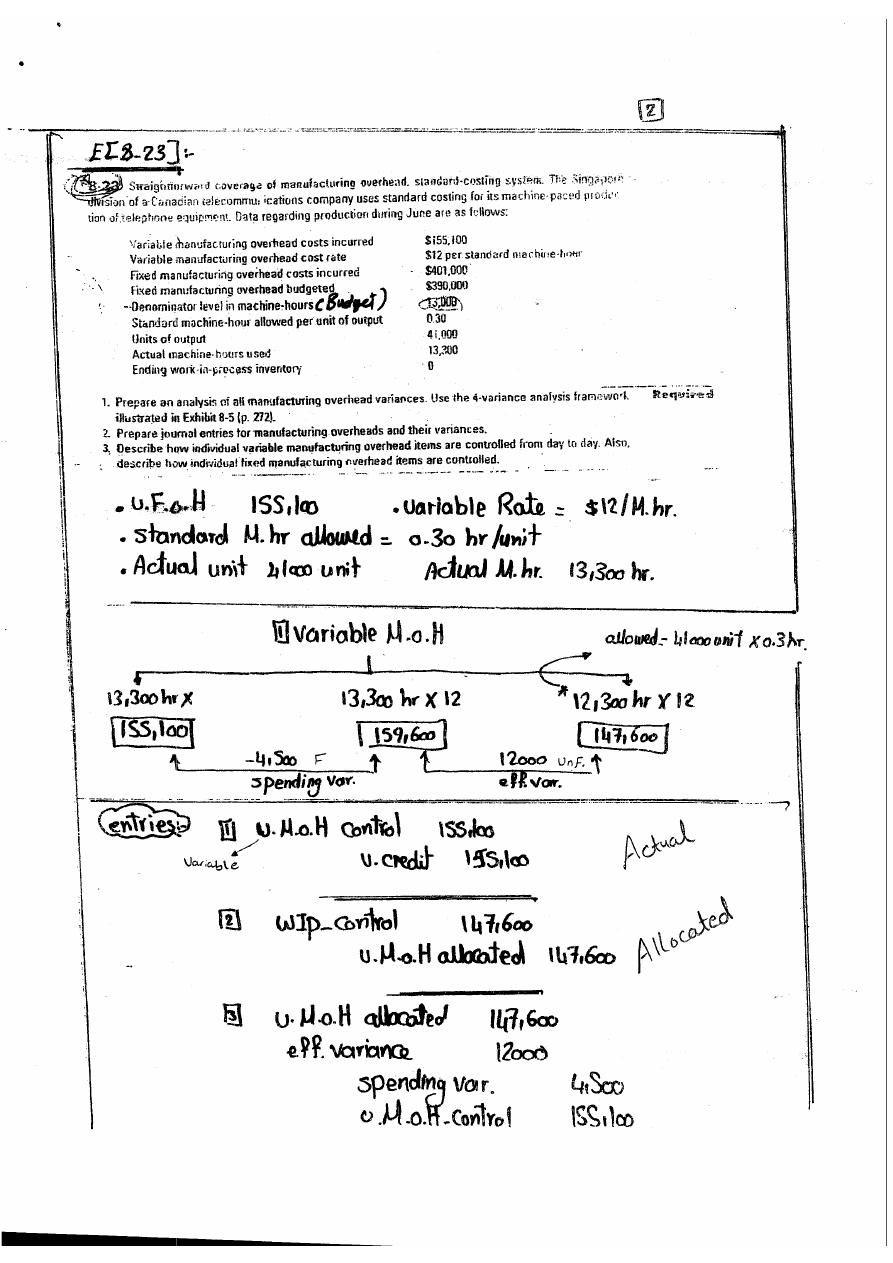 2
E[8-23]:-
8-23 Straightforward coverage of manufacturing overhead, standard-costing system. The Singapore
division of a Canadian telecommunications company uses standard costing for its machine-paced produc-
tion of telephone equipment. Data regarding production during June are as follows:
Variable manufacturing overhead costs incurred $155,100
Variable manufacturing overhead cost rate $12 per standard machine-hour
Fixed manufacturing overhead costs incurred $401,000
Fixed manufacturing overhead budgeted $390,000
Denominator level in machine-hours (Budget) 13,000
Standard machine-hour allowed per unit of output 0.30
Units of output 41,000
Actual machine-hours used 13,300
Ending work-in-process inventory 0
1. Prepare an analysis of all manufacturing overhead variances. Use the 4-variance analysis framework Required
illustrated in Exhibit 8-5 (p. 272).
2. Prepare journal entries for manufacturing overheads and their variances.
3. Describe how individual variable manufacturing overhead items are controlled from day to day. Also,
describe how individual fixed manufacturing overhead items are controlled.
. U.F.o.H 155,100 . Variable Rate = $12/M.hr.
. Standard M.hr allowed = 0.30 hr/unit
. Actual unit 41000 unit Actual M.hr. 13,300 hr.
1 Variable M.o.H allowed = 41000 unit X 0.3 hr.
13,300 hr X 13,300 hr X 12 * 12,300 hr X 12
155,100 159,600 147,600
-4,500 F 12000 UnF.
spending var. eff. var.
entries:- 1 U.M.o.H Control 155,100 Actual
Variable U. credit 155,100
2 WIp_control 147,600
U.M.o.H allocated 147,600 Allocated
3 U.M.o.H allocated 147,600
eff. variance 12000
spending var. 4,500
U.M.o.H-Control 155,100